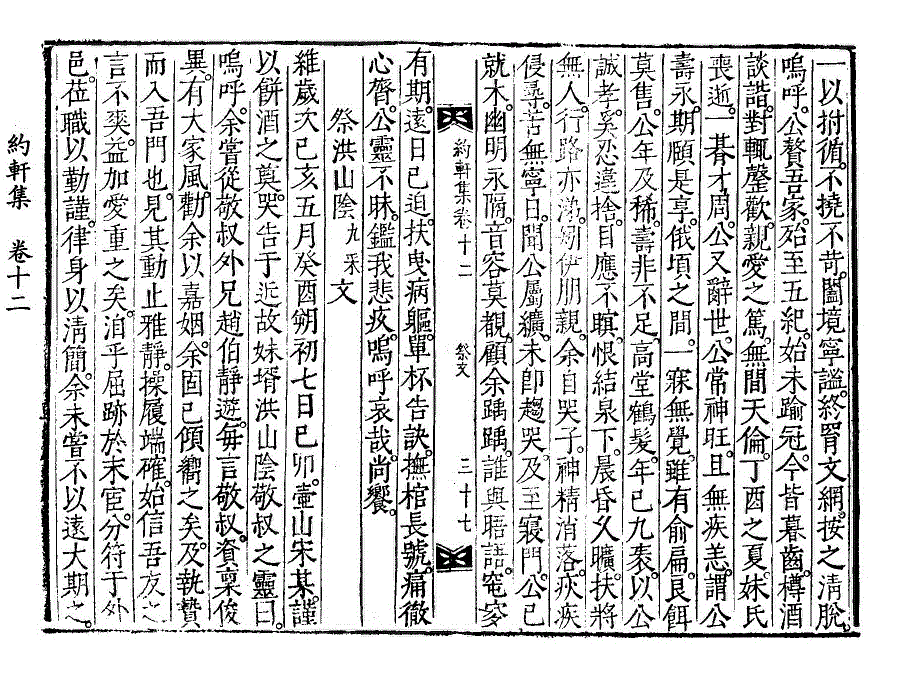 一以拊循。不撓不苛。闔境寧謐。終罥文網。按之清脫。
嗚呼。公贅吾家。殆至五紀。始未踰冠。今皆暮齒。樽酒
談諧。對輒罄歡。親愛之篤。無間天倫。丁酉之夏。妹氏
喪逝。一朞才周。公又辭世。公常神旺。且無疾恙。謂公
壽永。期頤是享。俄頃之間。一寐無覺。雖有俞扁。良餌
莫售。公年及稀。壽非不足。高堂鶴髮。年已九袠。以公
誠孝。奚忍違捨。目應不瞑。恨結泉下。晨昏久曠。扶將
無人。行路亦涕。矧伊朋親。余自哭子。神精消落。疾疾
侵尋。苦無寧日。聞公屬纊。未卽趨哭。及至寢門。公已
就木。幽明永隔。音容莫覩。顧余踽踽。誰與晤語。窀穸
有期。遠日已迫。扶曳病軀。單杯告訣。撫棺長號。痛徹
心膂。公靈不昧。鑑我悲疚。嗚呼哀哉。尙饗。
祭洪山陰九采文
維歲次己亥五月癸酉朔初七日己卯。壺山宋某。謹
以餠酒之奠。哭告于近故妹壻洪山陰敬叔之靈曰。
嗚呼。余嘗從敬叔外兄趙伯靜遊。每言敬叔。資稟俊
異。有大家風。勸余以嘉姻。余固已傾嚮之矣。及執贄
而入吾門也。見其動止雅靜。操履端確。始信吾友之
言不爽。益加愛重之矣。洎乎屈跡於末宦。分符于外
邑。莅職以勤謹。律身以淸簡。余未嘗不以遠大期之。
約軒集卷十二
祭文
三十七
約軒集 卷十二